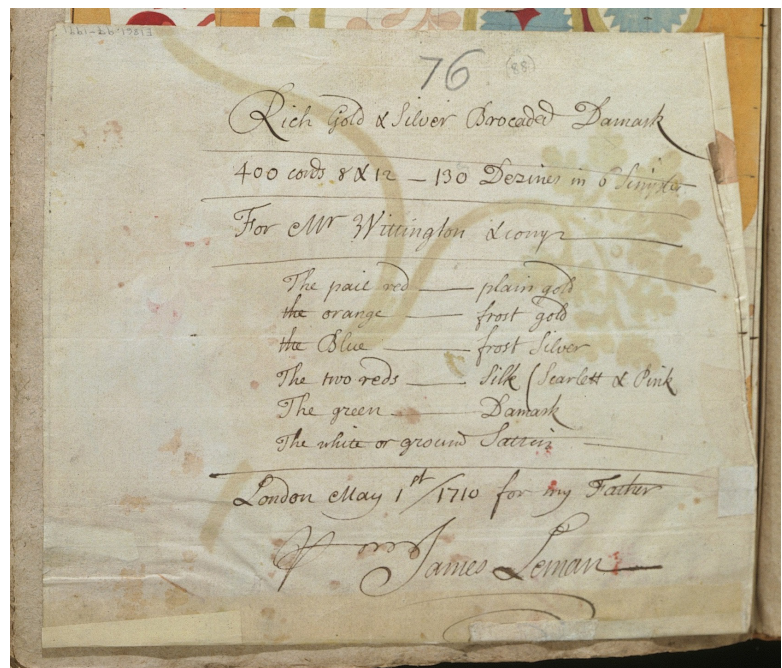 E.1861:97-1991
76 88
Rich Gold & Silver Brocaded Damask
400 cords 8 & 12 – 130 Dezines in 6
For Mr Wittington & compy
The pail red — plain gold
the orange — frost gold
the Blue — frost Silver
The two reds — Silk (Scarlett & Pink
The green — Damask
The white or ground Sattin —
London May 1st/1710 for my Father
James Leman